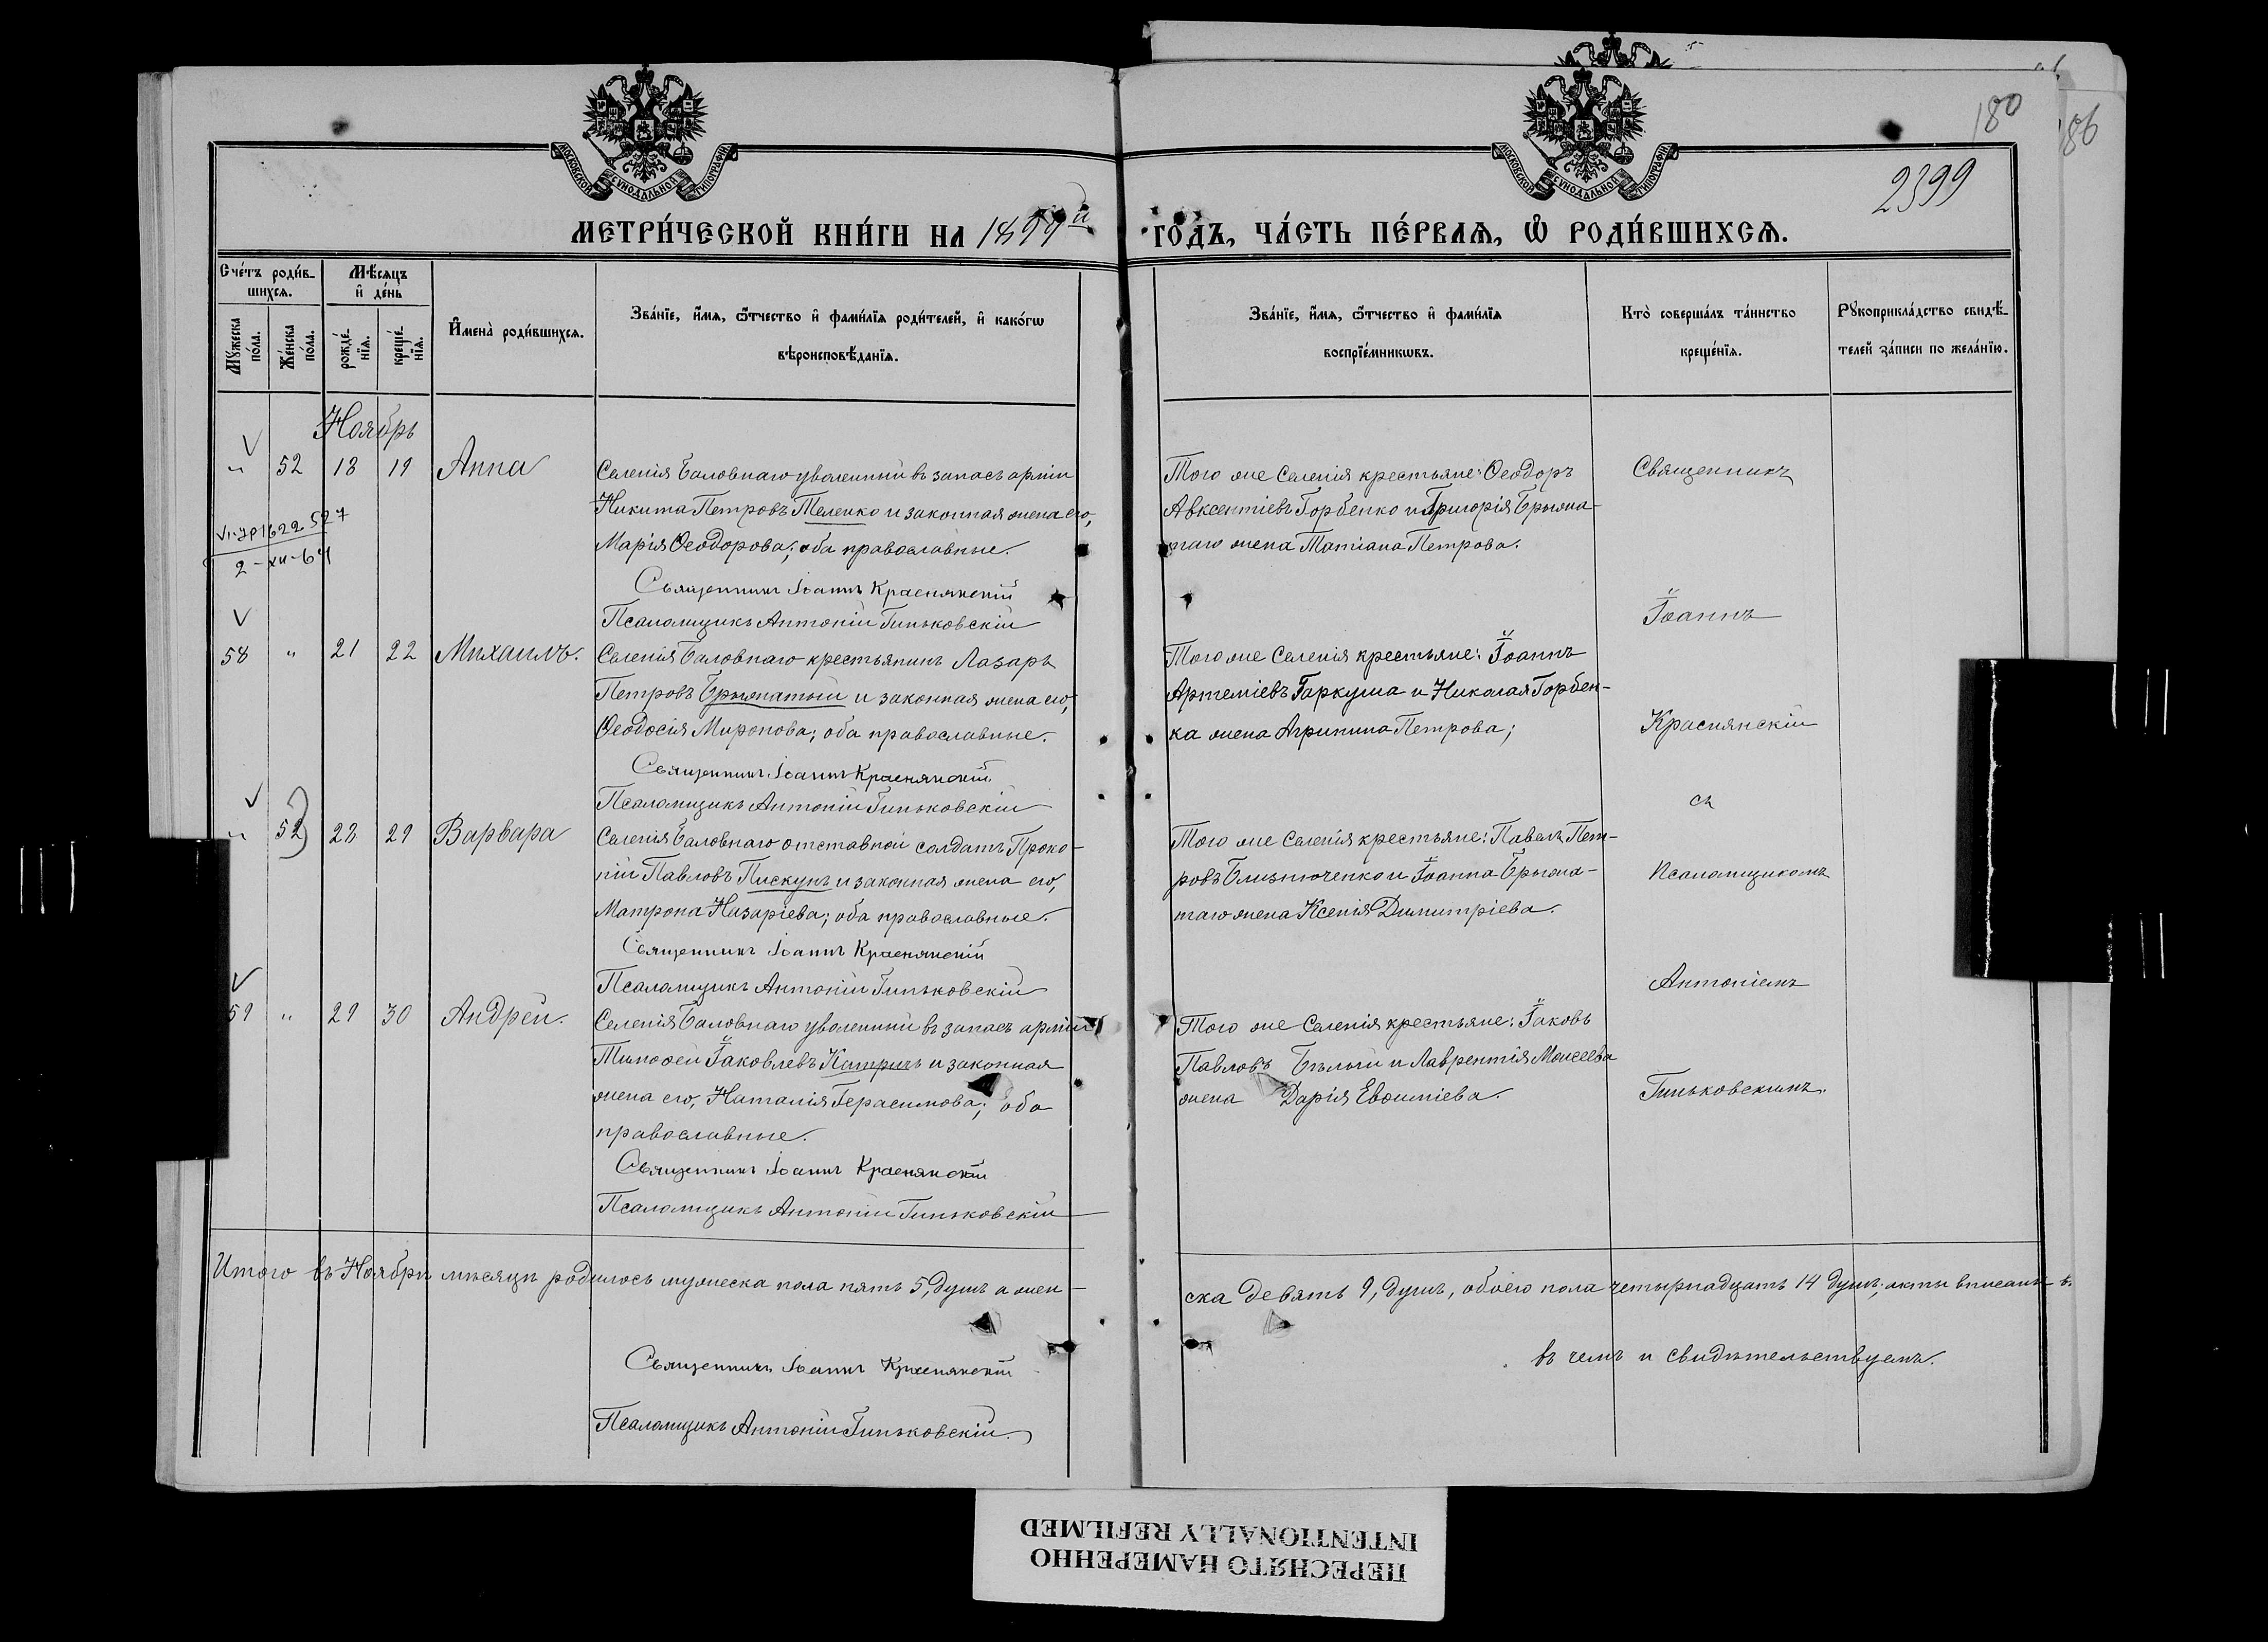 180
186
2399
МОСКОВСКОЙ СѴНОДАЛЬНОЙ ТИПОГРАФІИ
МОСКОВСКОЙ СѴНОДАЛЬНОЙ ТИПОГРАФІИ
МЕТРИ́ЧЕСКОЙ КНИ́ГИ НА 1899й
ГО́ДЪ, ЧА́СТЬ ПЕ́РВАѦ, Ѡ РОДИ́ВШИХСѦ.
Сче́тъ роди́в-
шихсѧ.
Мѣ́сѧцъ
и҆ де́нь
Мꙋ́жеска
по́ла.
Же́нска
по́ла.
рожде́-
нїѧ.
креще́-
нїѧ.
И҆мена̀ роди́вшихсѧ.
Зва́нїе, и҆́мѧ, ѻ҆́тчество и҆ фамѝлїѧ роди́телей, и҆ како́гѡ
вѣроисповѣ́данїѧ.
Зва́нїе, и҆́мѧ, ѻ҆́тчество и҆ фами́лїѧ
воспрїе́мникѡвъ.
Кто̀ соверша́лъ та́инство
креще́нїѧ.
Рꙋкоприкла́дство свидѣ́-
телей за́писи по жела́нїю.
Ноябрь
" 52 18 19 Анна
Селенія Баловнаго уволенный въ запасъ арміи
Никита Петровъ Теленко и законная жена его,
Марія Ѳеодорова; оба православные.
Священникъ Іоаннъ Краснянскій
Псаломщикъ Антоній Гиньковскій
Того же Селенія крестьяне: Ѳеодоръ
Авксентіевъ Горбенко и Григорія Брыжа-
таго жена Татіана Петрова.
2-XII-64
58 " 21 22 Михаилъ.
Селенія Баловнаго крестьянинъ Лазарь
Петровъ Брыжатый и законная жена его,
Ѳеодосія Миронова; оба православные.
Священникъ Іоаннъ Краснянскій
Псаломщикъ Антоній Гиньковскій
Того же Селенія крестьяне: Іоаннъ
Артеміевъ Гаркуша и Николая Горбен-
ка жена Агрипина Петрова;
" 52 28 29 Варвара
Селенія Баловнаго отставной солдатъ Проко-
пій Павловъ Пискунъ и законная жена его,
Матрона Назаріева; оба православные.
Священникъ Іоаннъ Краснянскій
Псаломщикъ Антоній Гиньковскій
Того же Селенія крестьяне: Павелъ Пет-
ровъ Близнюченко и Іоанна Брыжа-
таго жена Ксенія Димитріева.
59 " 29 30 Андрей.
Селенія Баловнаго уволенный въ запасъ арміи
Тимоѳей Іаковлевъ Катричъ и законная
жена его, Наталія Герасимова; оба
православные.
Священникъ Іоаннъ Краснянскій
Псаломщикъ Антоній Гиньковскій
Того же Селенія крестьяне: Іаковъ
Павловъ Бѣлый и Лаврентія Моисеева
жена Дарія Евѳиміева.
Священникъ
Іоаннъ
Краснянскій
съ
Псаломщикомъ
Антоніемъ
Гиньковскимъ.
Итого въ Ноябрѣ мѣсяцѣ родилось мужеска пола пять 5, душъ а жен-
ска девять 9, душъ, обоего пола четырнадцать 14 душъ; акты вписаны в.
въ чемъ и свидѣтельствуемъ.
Священникъ Іоаннъ Краснянскій
Псаломщикъ Антоній Гиньковскій.
ПЕРЕСНЯТО НАМЕРЕННО
INTENTIONALLY REFILMED